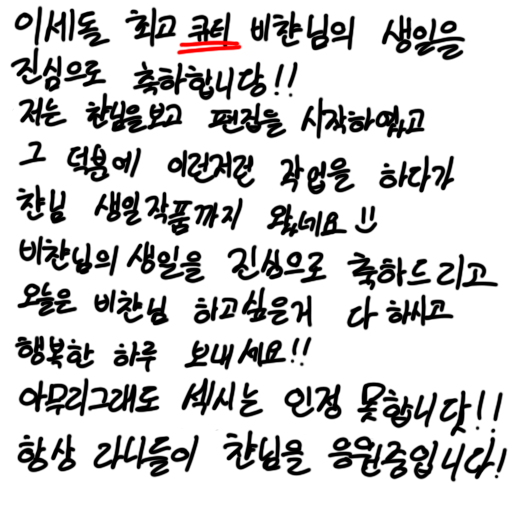 이세돌 최고 큐티 비챤님의 생일을
진심으로 축하합니당!!
저는 챤님을보고 편집을 시작하였고
그 덕분에 이런저런 작업을 하다가
챤님 생일작품까지 왔네요
비챤님의 생일을 진심으로 축하드리고
오늘은 비챤님 하고싶은거 다 하시고
행복한 하루 보내세요!!
아무리그래도 섹시는 인정 못합니닷!!
항상 라니들이 챤님을 응원중입니다!